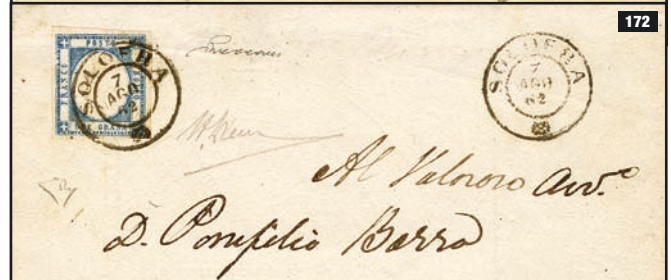 172
POSTA
FRANCO
DUE GRANA
SOLOFRA
7
AGO
62
SOLOFRA
7
AGO
62
Al Valoroso Avv.º
D. Pompilio Barra